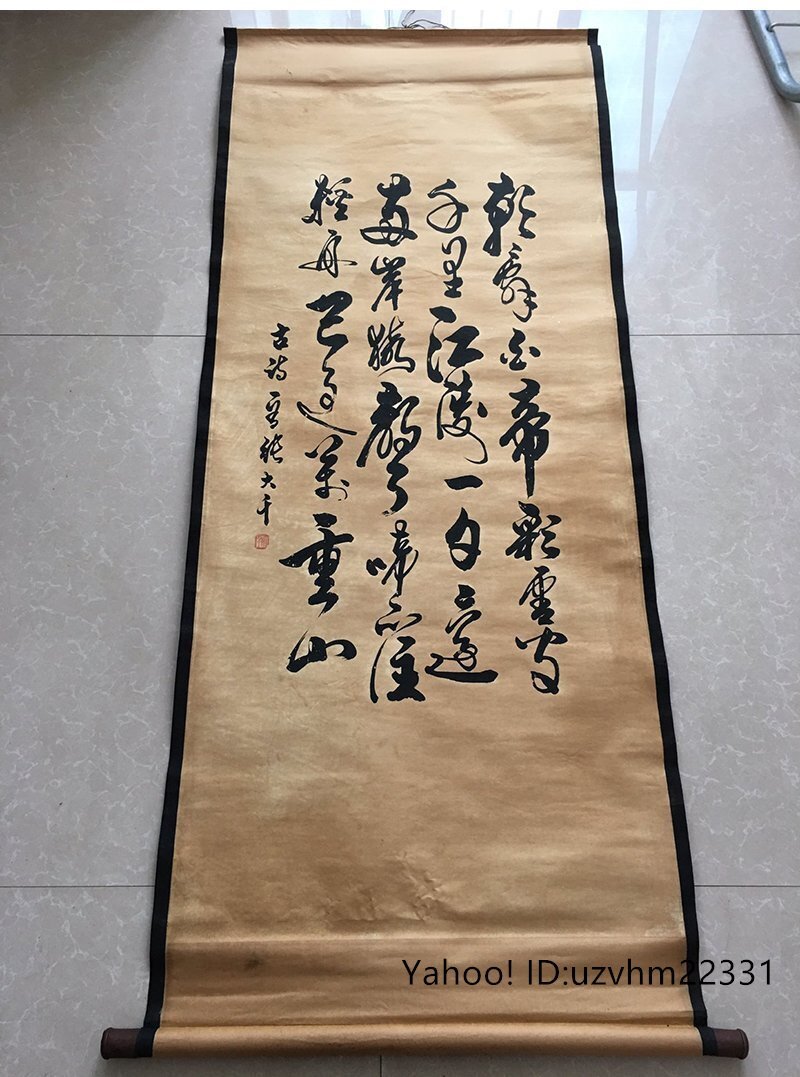 朝辞白帝彩雲間
千里江陵一日還
两岸猿聲啼不住
輕舟已過萬重山
古詩一首張大千
Yahoo! ID:uzvhm22331